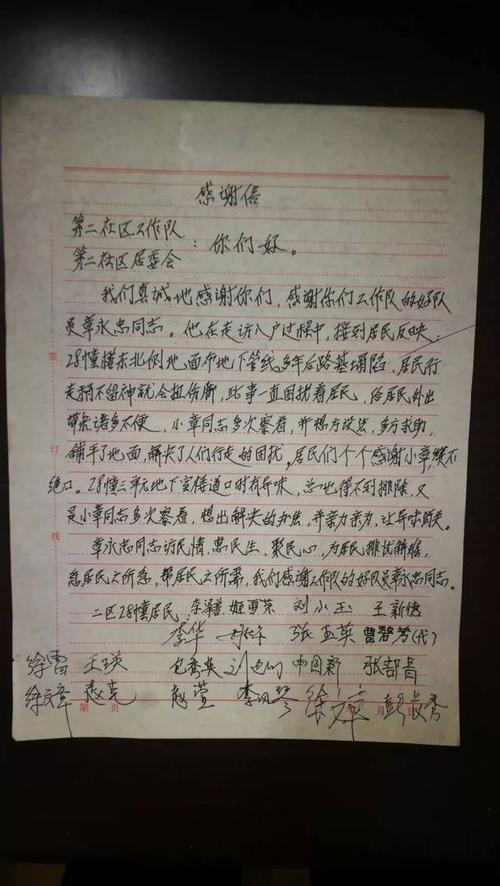 感谢信
第二社区工作队
:你们好。
第二社区居委会
我们真诚地感谢你们,感谢你们工作队的好队
员章永忠同志。他在走访入户过程中,接到居民反映:
28幢楼东北侧地面下地下管线多年后路基塌陷,居民行
走稍不留神就会扭伤脚,此事一直困扰着居民,给居民外出
带来诸多不便,小章同志多次察看,并想方设法,多方求助,
铺平了地面,解决了人们行走的困扰。居民们个个感谢小章赞不
绝口。28幢三单元地下室楼道口时有异味,总也得不到排除,又
是小章同志多次察看,想出解决的办法,并亲力亲为,让异味消失。
章永忠同志访民情、思民生、聚民心,为居民排忧解难,
急居民之所急,帮居民之所需,我们感谢工作队的好队员章永忠同志。
二区28幢居民: 姬雪荣 刘小玉 王新德
李华 张玉英 曾碧芳(代)
徐雷 王瑛 包秀英
赵克 赵萱
装
订
线
第 页
月 日